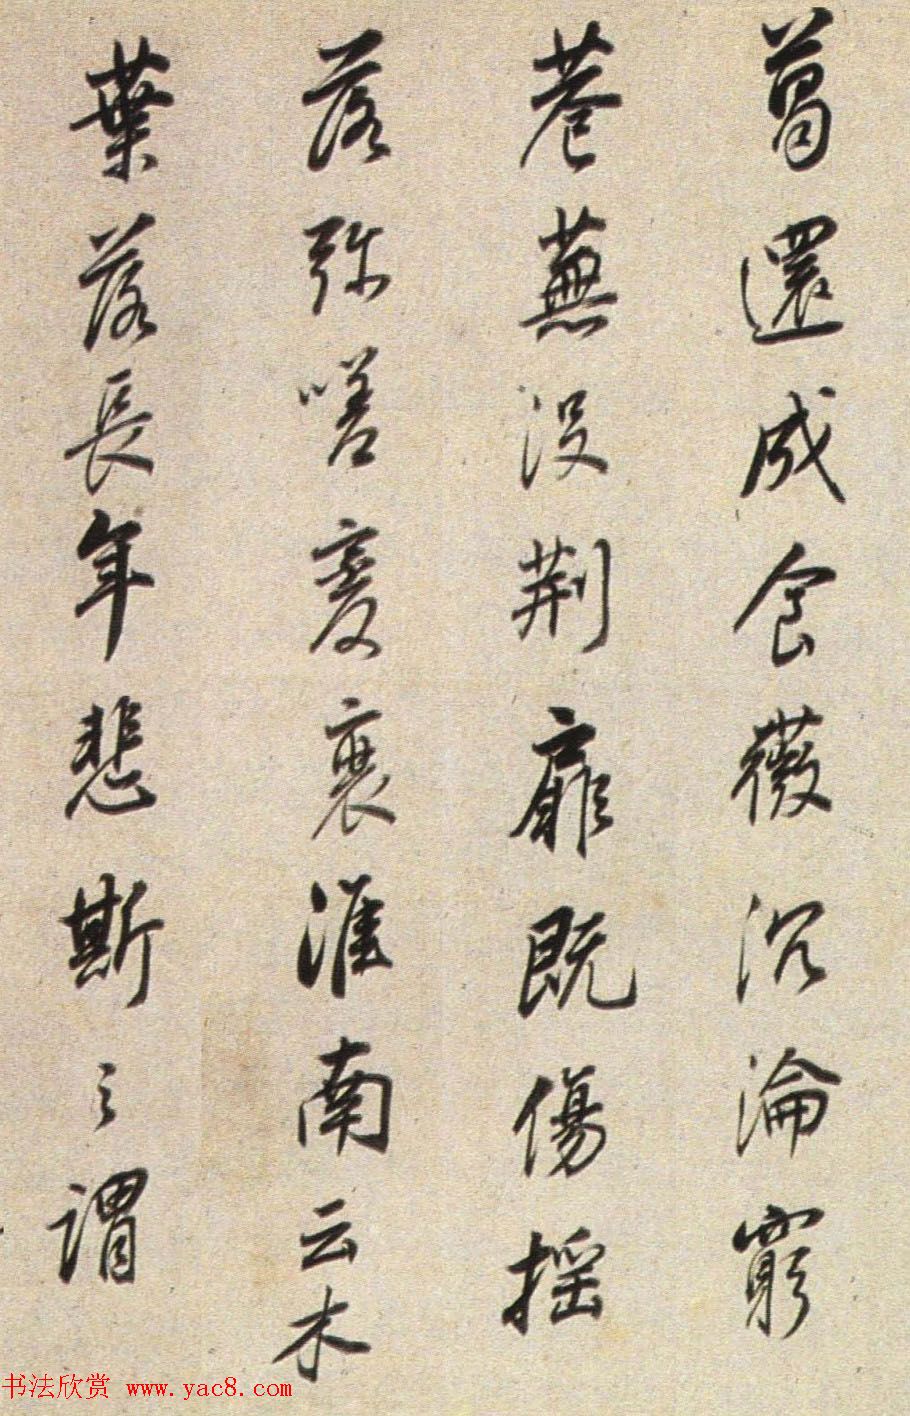 葛還成食薇沉淪窮
巷蕪没荆扉既傷揺
落弥嗟變衰淮南云木
葉落長年悲斯之謂
书法欣赏 www.yac8.com